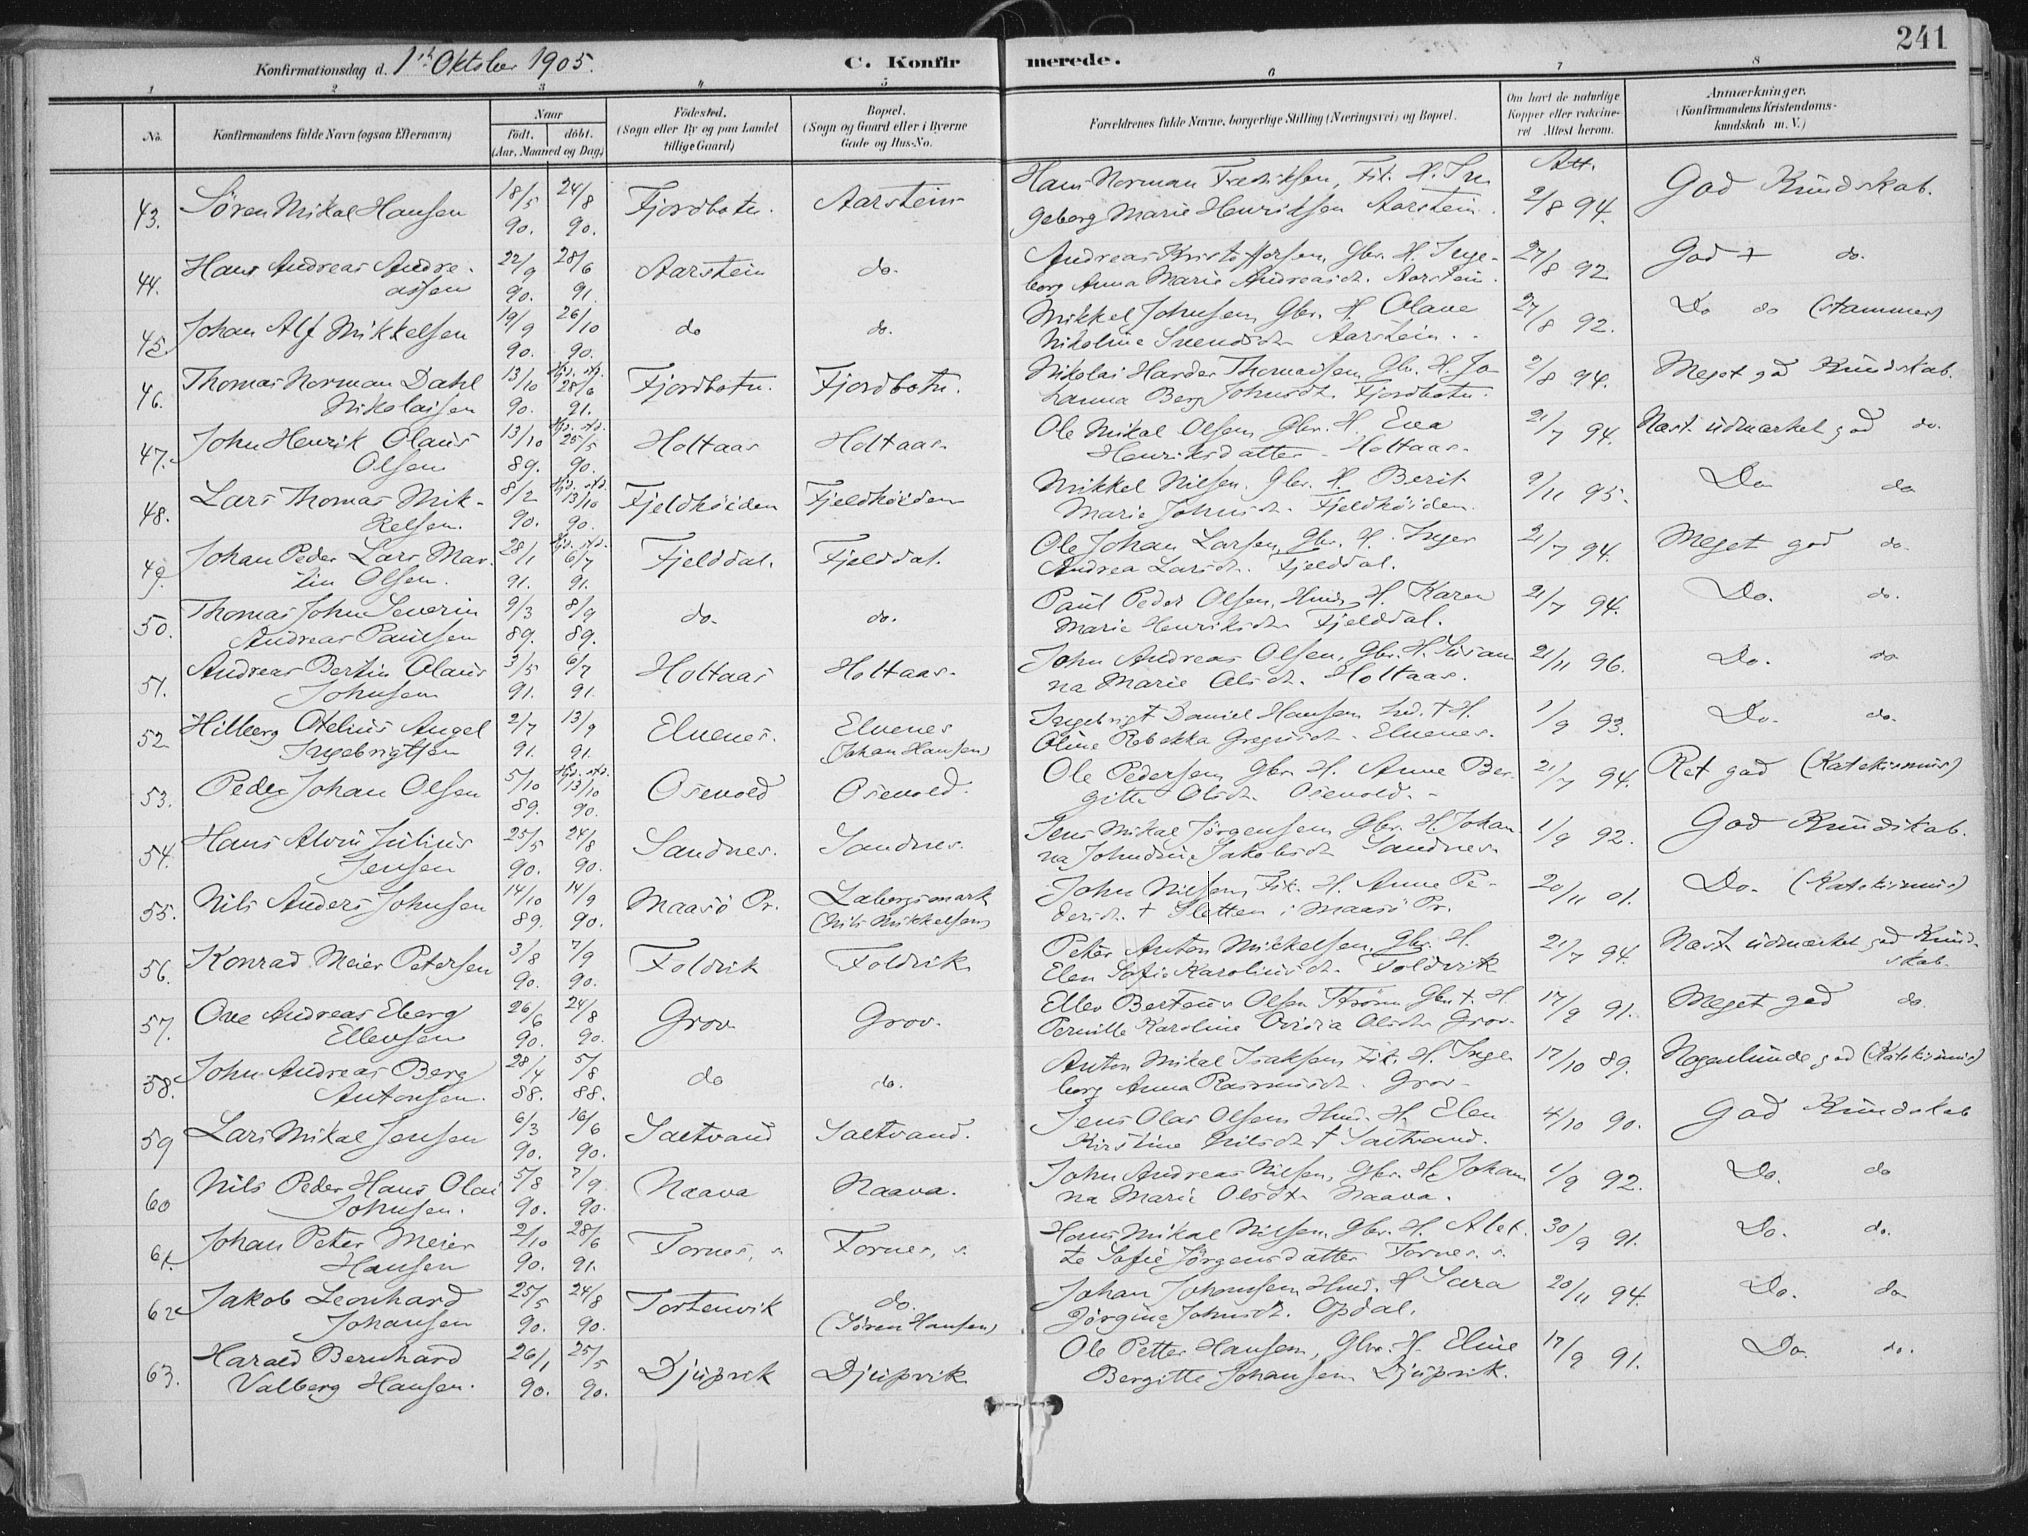 241
Konfirmationsdag d. 1ste Oktober 1905. C. Konfirmerede.
1 2 3 4 5 6 7 8
No. Konfirmandens fulde Navn (ogsaa Efternavn) Naar født. døbt. (Aar, Maaned og Dag) Fødested. (Sogn eller By og paa Landet tillige Gaard) Bopæl. (Sogn og Gaard eller i Byerne Gade og Hus-No. Forældrenes fulde Navne, borgerlige Stilling (Næringsvei) og Bopæl. Om havt de naturlige Kopper eller vaccineret Attest herom. Anmærkninger. (Konfirmandens Kristendomskundskab m. V.)
Att.
43. Søren Mikal Hansen 18/5 90. 24/8 90. Fjordbotn. Aarstein Hans Norman Fredriksen, Fik. H. In
geborg Marie Henriksen Aarstein. 2/8 94. God Kundskab.
44. Hans Andreas Andre-
assen 22/9 90. 28/6 91. Aarstein do. Andreas Kristoffersen, Gbr. H. Inge-
borg Anna Marie Andreasdt. Aarstein. 27/8 92 God + do.
45. Johan Alf Mikkelsen 19/9 90. 26/10 90. do do. Mikkel Johnsen, Gbr. H. Olave
Nikoline Svendsdtr Aarstein. 27/8 92. Do do (Stammer)
46. Thomas Norman Dahl
Nikolaisen 13/10 90. Hjd. stf. 28/6 91. Fjordbotn. Fjordbotn. Nikolai Harder Thomassen, Gbr. H. Jo
hanna Berg Johnsdt. Fjordbotn. 2/8 94. Meget god Kundskab.
47. John Henrik Olaus
Olsen 13/10 89. Hjd. stf. 25/5 90. Holtaas Holtaas. Ole Mikal Olsen, Gbr. H. Eva
Henriksdatter - Holtaas. 21/7 94. Næst. udmærket god do.
48. Lars Thomas Mik-
kelsen. 8/2 90. Hjd. stf. 13/10 90. Fjeldhøiden Fjeldhøiden Mikkel Nilsen. Gbr. H. Berit
Marie Johnsdt. Fjeldhøiden. 9/11 95. Do do
49. Johan Peder Lars Mar-
tin Olsen. 28/1 91. Hjd. stf. 6/7 91. Fjelddal. Fjelddal. Ole Johan Larsen, Gbr. H. Inger
Andrea Larsdt. Fjelddal. 21/7 94. Meget god do.
50. Thomas John Severin
Andreas Paulsen 9/3 89. 8/9 89. do. do. Paul Peder Olsen, Hmd. H. Karen
Marie Henriksdtr Fjelddal. 21/7 94. Do. do.
51. Andreas Bertin Olaus
Johnsen 3/5 91. 6/7 91. Holtaas Holtaas. John Andreas Olsen, Gbr. H. Susan
na Marie Olsdt. Holtaas. 21/11 96. Do. do
52 Hilberg Otelius Angel
Ingebrigtsen 2/7 91. 13/9 91. Elvenes. Elvenes
(Johan Hansen) Ingebrigt Daniel Hansen Ind. + H.
Oline Rebekka Gregusdt. Elvenes. 1/9 93. Do. do.
53. Peder Johan Olsen 5/10 89. Hjd. stf. 13/10 90. Osevold Osevold. Ole Pedersen, Gbr. H. Anne Ber-
gitte Olsdt. Osevold. 21/7 94. Ret god (Katekismus)
54. Hans Alvin Julius
Jensen 25/5 90. 24/8 90. Sandnes. Sandnes. Jens Mikal Jørgensen, Gbr. H. Johan
na Johndine Jakobsdt Sandnes. 1/9 92. God Kundskab.
55. Nils Anders Johnsen 14/10 89. 14/9 90. Maasø Pr. Labergsmark
(Nils Mikkelsen) John Nilsen, Fik. H. Anne Pe-
dersdt. + Sletten i Maasø Pr. 20/11 01. Do. (Katekismus)
56. Konrad Meier Petersen 3/8 90. 7/9 90. Foldvik Foldvik Peter Anton Mikkelsen, Gbr. H.
Elen Sofie Karolinesdt. Foldvik 21/7 94. Næst udmærket god Kund-
skab.
57. Ove Andreas Eberg
Ellevsen 26/6 90. 24/8 90. Grov Grov. Ellev Berteus Olsen Strøm Gbr. + H.
Pernille Karoline Ovidia Olsdtr Grov. 17/9 91. Meget god do.
58. John Andreas Berg
Antonsen. 28/4 88. 5/8 88. do do. Anton Mikal Isaksen, Fik. H. Inge
borg Anna Rasmusdt. Grov. 17/10 89. Nogenlunde god (Katekismus)
59 Lars Mikal Jensen 6/3 90. 16/6 90. Saltvand Saltvand. Jens Olai Olsen, Hmd. H. Elen
Kirstine Nilsdt + Saltvand. 4/10 90. God Kundskab
60 Nils Peder Hans Olai
Johnsen. 5/8 90. 7/9 90. Naava Naava. John Andreas Nilsen, Gbr. H. Johan
na Marie Olsdtr Naava. 1/9 92. Do. do
61. Johan Peter Meier
Hansen 2/10 90. 28/6 91. Fornes, s. Fornes, s. Hans Mikal Nilsen, Gbr. H. Alet
te Sofie Jørgensdatter Fornes. s. 30/9 91. Do. do.
62 Jakob Leonhard
Johansen 25/5 90. 24/8 90. Tortenvik do.
(Søren Hansen) Johan Johansen Hmd. H Sara
Jørgine Johnsdt. Opdal. 20/11 94. Do. do
63. Harald Bernhard
Valberg Hansen. 26/1 90. 25/5 90. Djupvik Djupvik Ole Petter Hansen, Gbr. H. Eline
Bergitte Johansen Djupvik. 17/9 91. Do. do.